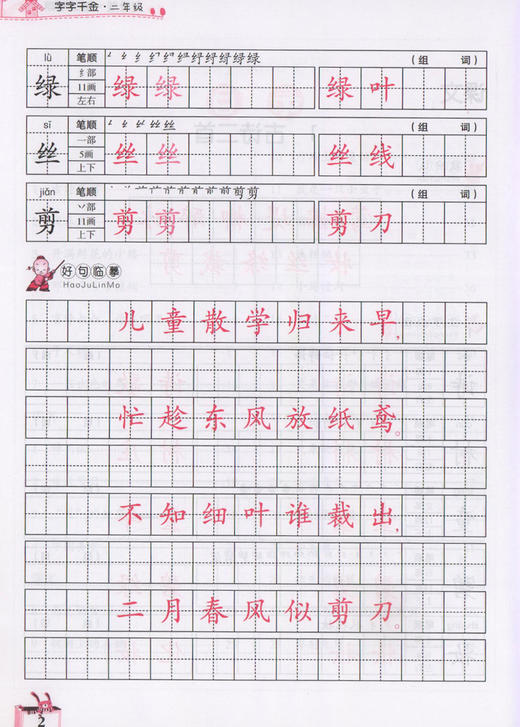 字字千金·二年级
lǜ 笔顺 (组 词)
绿 纟部 11画 左右 绿 绿 绿 叶
sī 笔顺 (组 词)
丝 一部 5画 上下 丝 丝 丝 线
jiǎn 笔顺 (组 词)
剪 丷部 11画 上下 剪 剪 剪 刀
好句临摹
HaoJuLinMo
儿童散学归来早,
忙趁东风放纸鸢。
不知细叶谁裁出,
二月春风似剪刀。
2